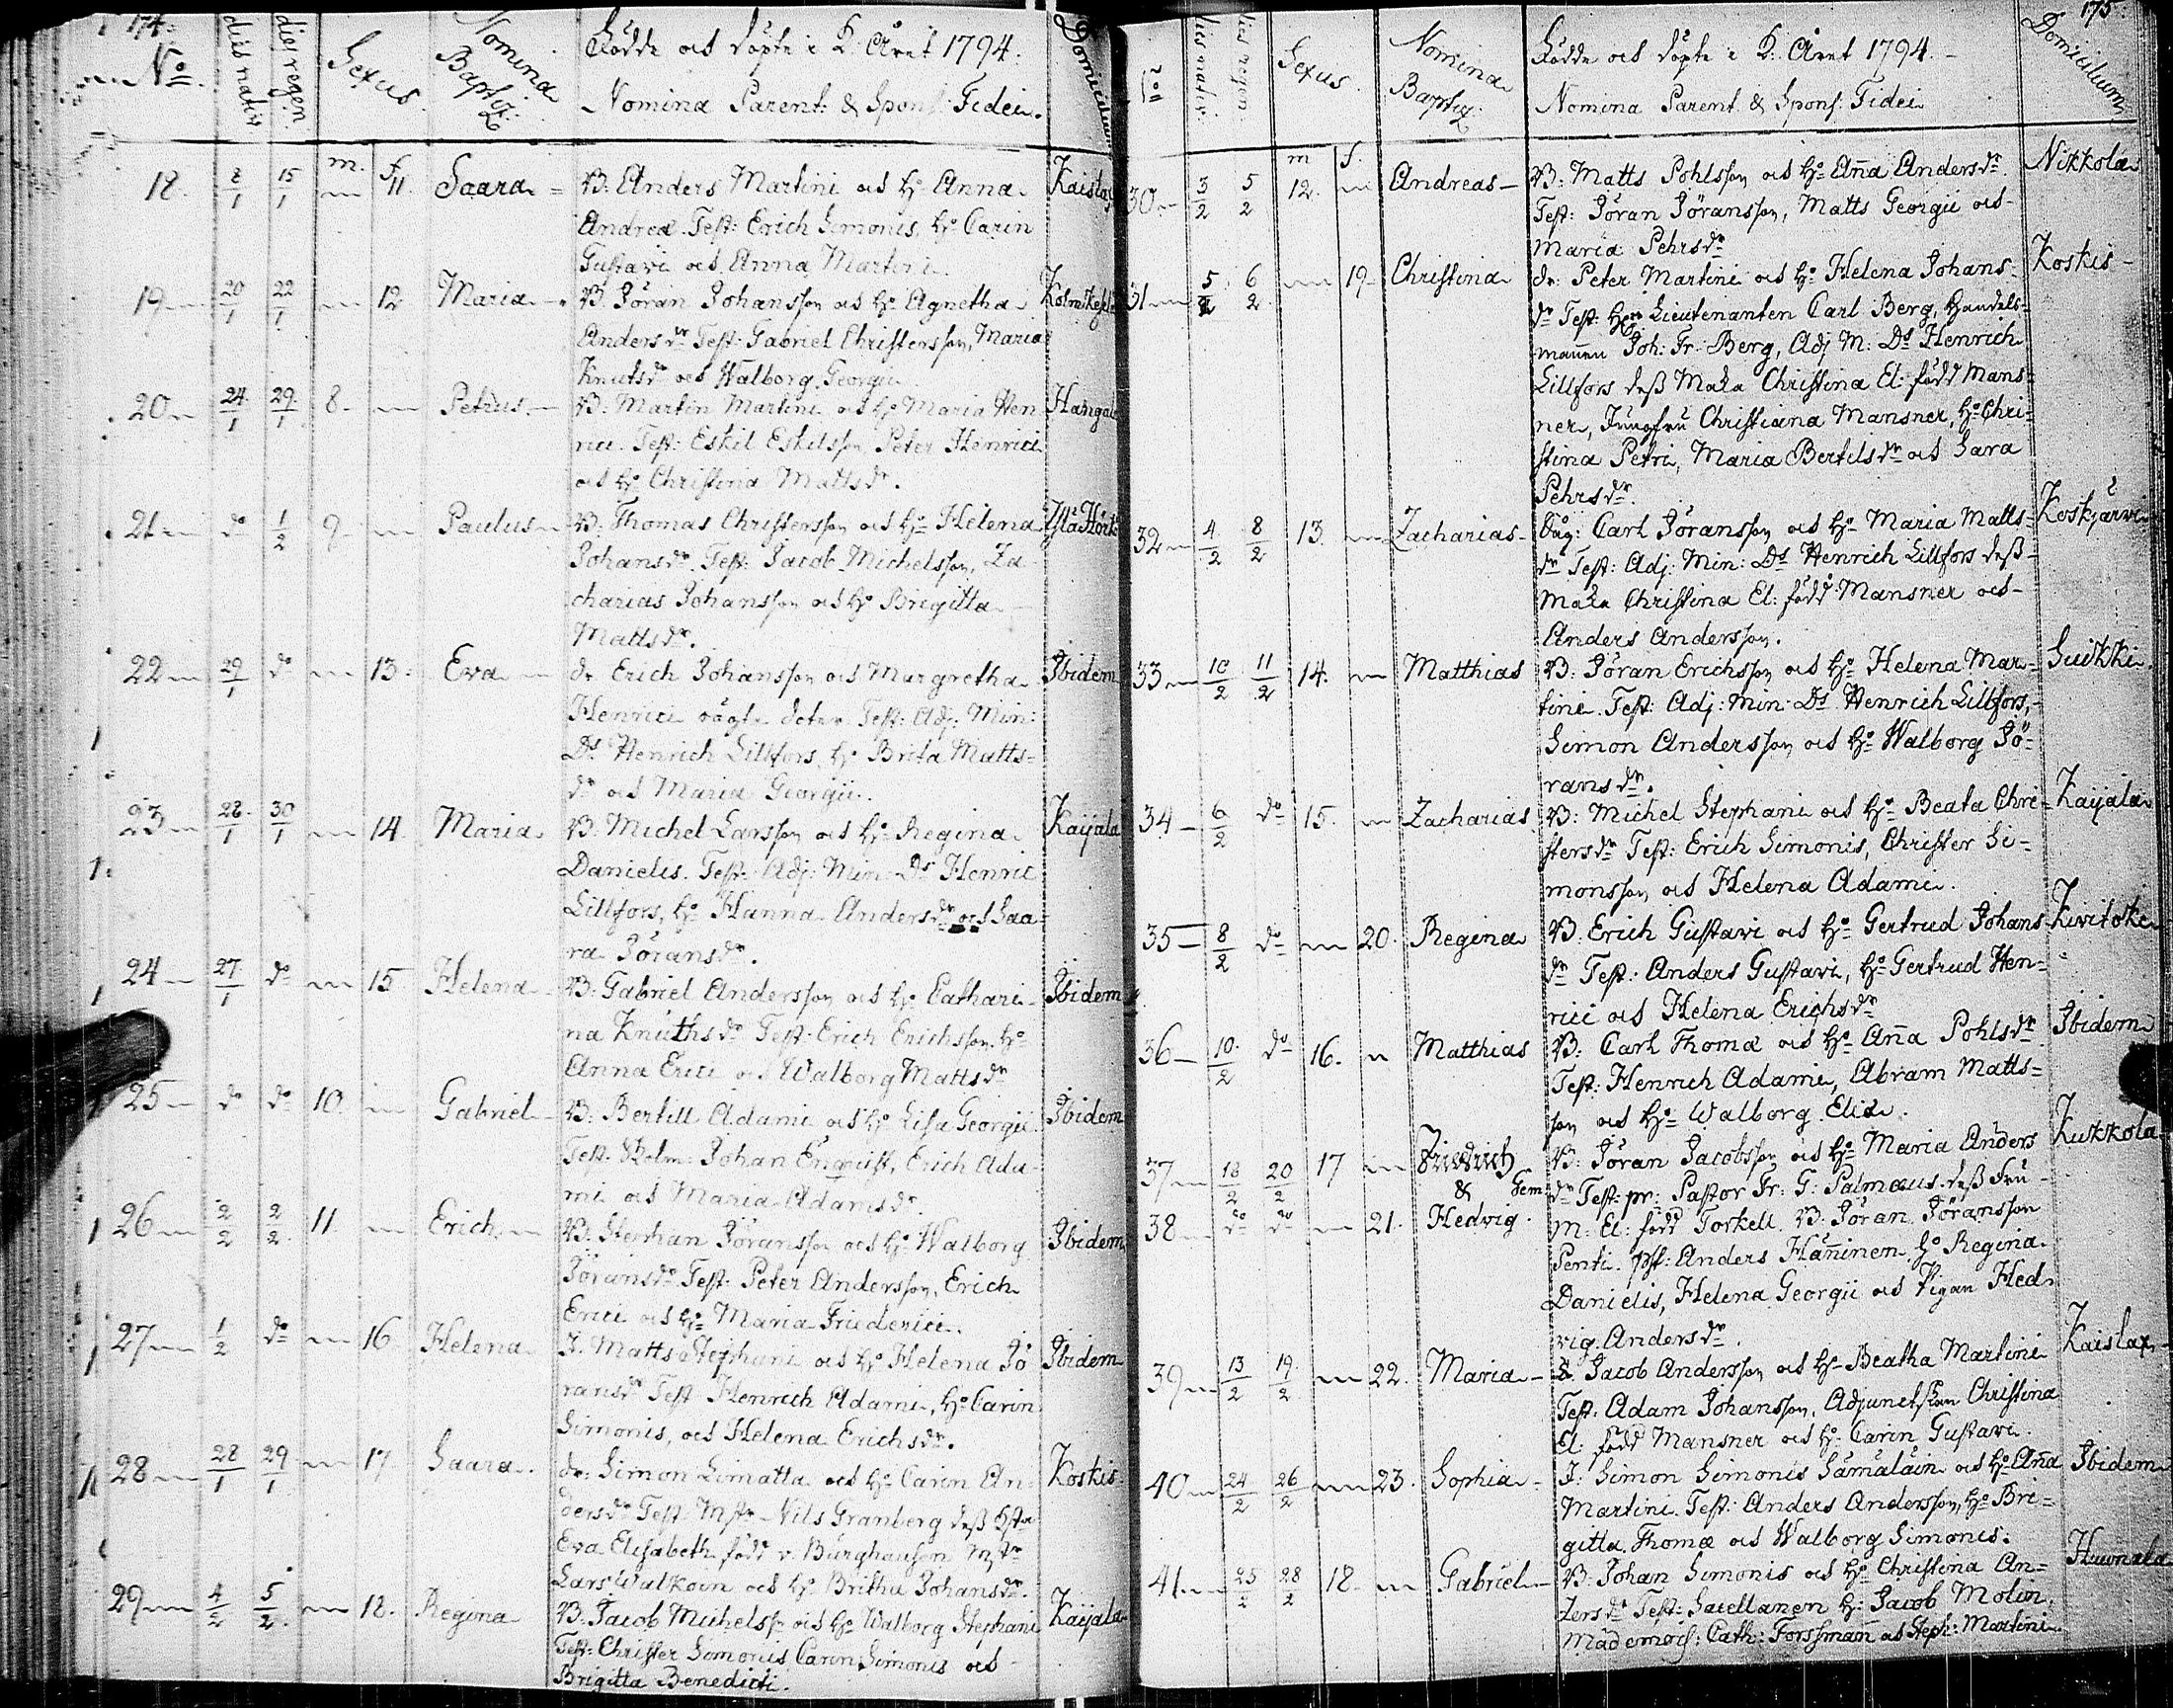 174.
No. dies nativ. dies regen. Sexus. Nomina Baptiz: Födde och döpte i K: Året 1794. Nomina Parent: & Sponf: Fidei. Domicilium
m. f.
18. 8/1 15/1 11. Saara B. Anders Martini och H:o Anna Kaislax
Andreæ. Test: Erich Simonis, H:o Carin
Gustavi och Anna Martini
19 20/1 22/1 12 Maria B. Jöran Johansson och H:o Agnetha
Anders dr. Test: Gabriel Christersson, Maria
Knuts dr och Walborg Georgii
20 24/1 29/1 8. Petrus B. Martin Martini och H:o Maria Hen
rici. Test: Eskil Eskelsson, Peter Henrici
och H:o Christina Matts dr.
21 do 1/2 9 Paulus B. Thomas Christersson och H:o Helena
Johans dr. Test: Jacob Michelsson, Za
charias Johansson och H:o Brigitta
Matts dr.
22 29/1 do 13. Eva dr Erich Johansson och Margretha Ibidem
Henrici Test: Adj: Min:
Ds Henrich Lillfors, H:o Brita Matts=
dr och Maria Georgii.
23 28/1 30/1 14 Maria B. Michel Larsson och H:o Regina Kaijala
Danielis. Test: Adj: Min: Ds Henric
Lillfors, H:o Hanna Anders dr och Saa=
ra Jörans dr.
24 27/1 do 15 Helena B. Gabriel Andersson och H:o Cathari= Ibidem
na Knuths dr Test: Erich Erichsson H:o
Anna Erici och Walborg Matts dr
25 do do 10. Gabriel B. Bertill Adami och H:o Lisa Georgii Ibidem
Test: Johan Enqvist, Erich Ada=
mi och Maria Adams dr.
26 2/2 2/2 11. Erich B. Stephan Jöransson och H:o Walborg Ibidem
Jörans dr. Test: Peter Andersson, Erich
Erici och H:o Maria Friederici.
27 1/2 do 16 Helena I. Matts Stephani och H:o Helena Jö Ibidem
rans dr Test Henrich Adami, H:o Carin
Simonis, och Helena Erichs dr.
28 28/1 29/1 17 Saara. dr: Simon Limatta och H:o Carin An= Koskis
ders dr Test Nils Granberg dess
Eva Elisabeth född v. Burghausen
Lars Walkoin och H:o Britha Johans dr.
29 4/2 5/2 18. Regina B. Jacob Michelss: och H:o Walborg Stephani Kaijala
Test: Christer Simonis Carin Simonis och
Brigitta Benedicti.
175.
No dies nativ. dies regen. Sexus. Nomina Baptiz: Födde och döpte i K: Året 1794. Nomina Parent & Sponf: Fidei Domicilium
m f.
30 3/2 5/2 12. Andreas B: Matts Pohlsson och H:o Anna Anders dr. Nikkola
Test: Jöran Jöransson, Matts Georgii och
Maria Pehrs dr
31 5/2 6/2 19 Christina dr: Peter Martini och H:o Helena Johans= Koskis
dr Test: Lieutenanten Carl Berg, Handels=
mannen Joh: Fr: Berg, Adj M: Ds Henrich
Lillfors dess Maka Christina El: född Mans=
ner, Jungfru Christiana Mansner, H:o Chri=
stina Petri, Maria Bertils dr och Sara
Pehrs dr.
32 4/2 8/2 13. Zacharias Carl Jöransson och H:o Maria Matts= Koskjärvi
dr Test: Adj: Min: Ds Henrich Lillfors dess
Maka Christina El: född Mansner och
Anders Andersson.
33 10/2 11/2 14. Matthias B: Jöran Erichsson och H:o Helena Mar= Suikki
tini. Test: Adj: Min: Ds Henrich Lillfors,
Simon Andersson och H:o Walborg Jö=
rans dr.
34 6/2 do 15. Zacharias B: Michel Stephani och H:o Beata Chri= Kaijala
sters dr Test: Erich Simonis, Christer Si=
monsson och Helena Adami.
35 8/2 do 20. Regina B: Erich Gustavi och H:o Gertrud Johans Kivitoke
dr Test: Anders Gustavi, H:o Gertrud Hen=
rici och Helena Erichs dr
36 10/2 do 16. Matthias B: Carl Thomæ och H:o Anna Pohls dr Ibidem
Test: Henrich Adami, Abram Matts=
son och H:o Walborg Eliæ.
37 18/2 20/2 17 Friedrich B: Jöran Jacobsson och H:o Maria Anders Kukkola
& Gem dr Test: pr: Pastor Fr: G: Palmæus dess Fru
38 do do 21. Hedvig. M: El: född Torkell. B. Jöran Jöransson
Penti. Anders Hänninen H:o Regina
Danielis, Helena Georgii och Pigan Hed
vig Anders dr.
39 13/2 19/2 22. Maria Jacob Andersson och H:o Beatha Martini Kaislax
Test: Adam Johansson, Adjunctskan Christina
El: född Mansner och H:o Carin Gustavi.
40 24/2 26/2 23. Sophia I: Simon Simonis Sämäläin och H:o Anna Ibidem
Martini. Test: Anders Andersson, H:o Bri=
gitta Thomæ och Walborg Simonis.
41 25/2 28/2 18. Gabriel B: Johan Simonis och H:o Christina An=
ders dr Test: Sacellanen H: Jacob Molin,
Mademois: Cath: Forssman och Steph: Martini